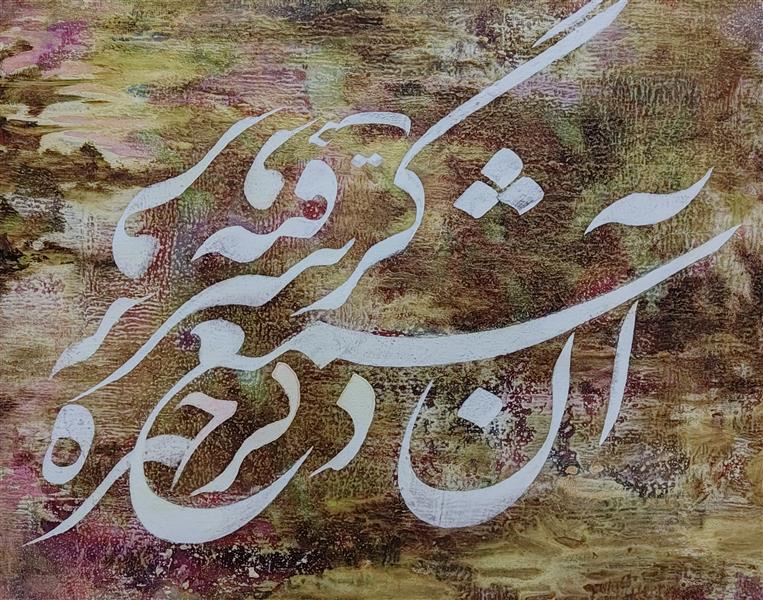 آن شمع سر گرفته دگر چهره